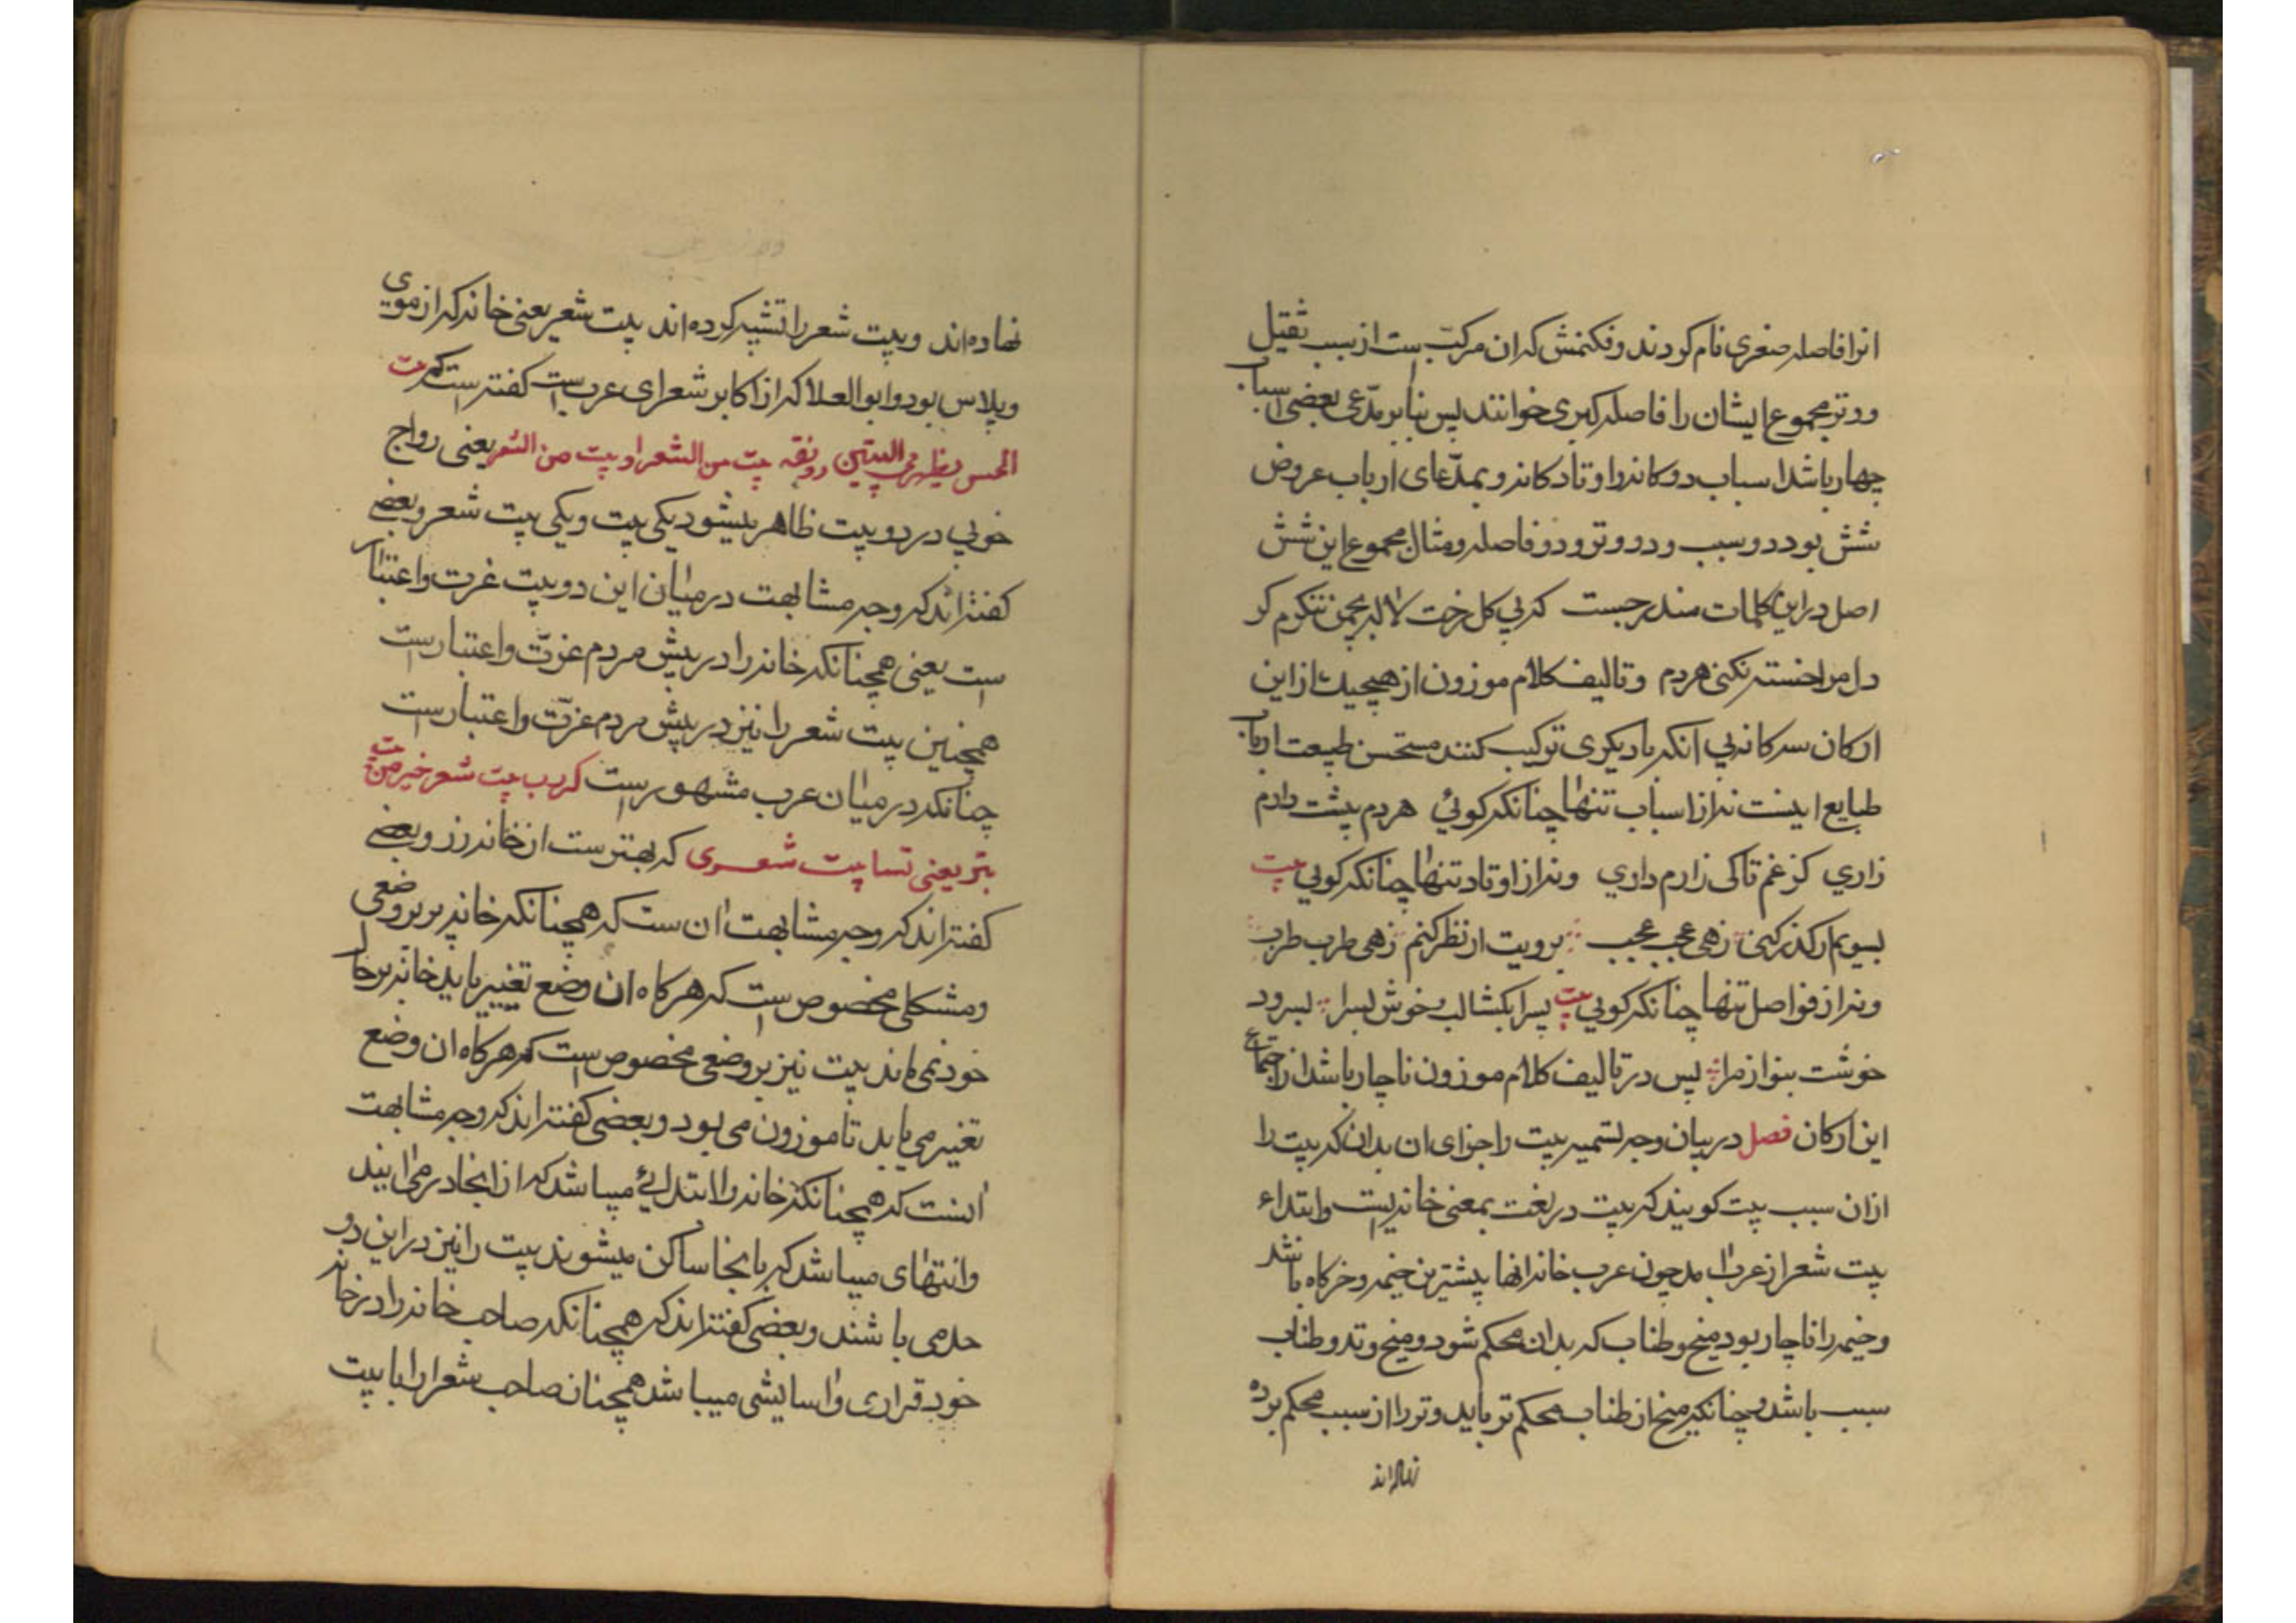 انرا فاصله صغری نام کردند و فکنمش که ان مرکب ست از سبب ثقیل
و وتر مجموع ایشان را فاصله کبری خوانند پس بنابر مدّعی بعضی اسباب
چهار باشد اسباب دوکانه و اوتاد کانه و بمدّعای ارباب عروض
شش بود دو سبب و دو وتر و دو فاصله و مثال مجموع این شش
اصل در این کلمات مندرجست که بی کل رخت لاله بچمن ننکرم کر
دل مرا خسته نکنی هردم و تالیف کلام موزون از هیچیک از این
ارکان سه کانه بی انکه با دیکری ترکیب کنند مستحسن طبیعت ارباب
طبایع اینست نه از اسباب تنها چنانکه کوئی هردم پیشت دارم
زاری کز غم تا کی زارم داری و نه از اوتاد تنها چنانکه کویی بیت
بسویم ار کذر کنی زهی عجب عجب برویت ار نظر کنم زهی طرب طرب
و نه از فواصل تنها چنانکه کویی بیت پسرا بکشا لب و خوش بسرا بسرود
خوشت بنواز مرا پس در تالیف کلام موزون ناچار باشد از اجتماع
این ارکان فصل در بیان وجه تسمیه بیت را جزای ان بدان که بیت را
ازان سبب بیت کویند که بیت در لغت بمعنی خانه است و ابتداء
بیت شعر از عرب امد چون عرب خانه انها پیشترین خیمه و خرکاه باشد
و خیمه را ناچار بود میخ و طناب که بدان محکم شود و میخ وتد و طناب
سبب باشد و چنانکه میخ از طناب محکم تر باید وتر را از سبب محکم برده
نهاده اند
نهاده اند و بیت شعر را تشبیه کرده اند به بیت شعر یعنی خانه که از موی
و پلاس بود و ابو العلا که از اکابر شعرای عرب است کفته است که بیت
الحسن یظهر فی البیتین رونقه بیت من الشعر او بیت من الشعر یعنی رواج
خوبی در دو بیت ظاهر میشود یکی بیت و یکی بیت شعر و بعضی
کفته اند که وجه مشابهت در میان این دو بیت عزت و اعتبار
است یعنی همچنانکه خانه را در پیش مردم عزت و اعتبار است
همچنین بیت شعر را نیز در پیش مردم عزّت و اعتبار است
چنانکه در میان عرب مشهور است که رب بیت شعر خیر من بیت
تبر یعنی بسا بیت شعری که بهتر ست از خانه زر و بعضی
کفته اند که وجه مشابهت ان ست که همچنانکه خانه بر بروضعی
و مشکلی مخصوص است که هر کاه ان وضع تغییر یابد خانه بر حال
خود نمی ماند بیت نیز بر وضعی مخصوص است که هر کاه ان وضع
تغییر می یابد نا موزون می بود و بعضی کفته اند که وجه مشابهت
انست که همچنانکه خانه را ابتدائی میباشد که از انجا در می ایند
و انتهای میباشد که بانجا ساکن میشوند بیت را نیز در این دو
حد می باشند و بعضی کفته اند که همچنانکه صاحب خانه را در خانه
خود قراری و اسایشی میباشد همچنان صاحب شعر را با بیت